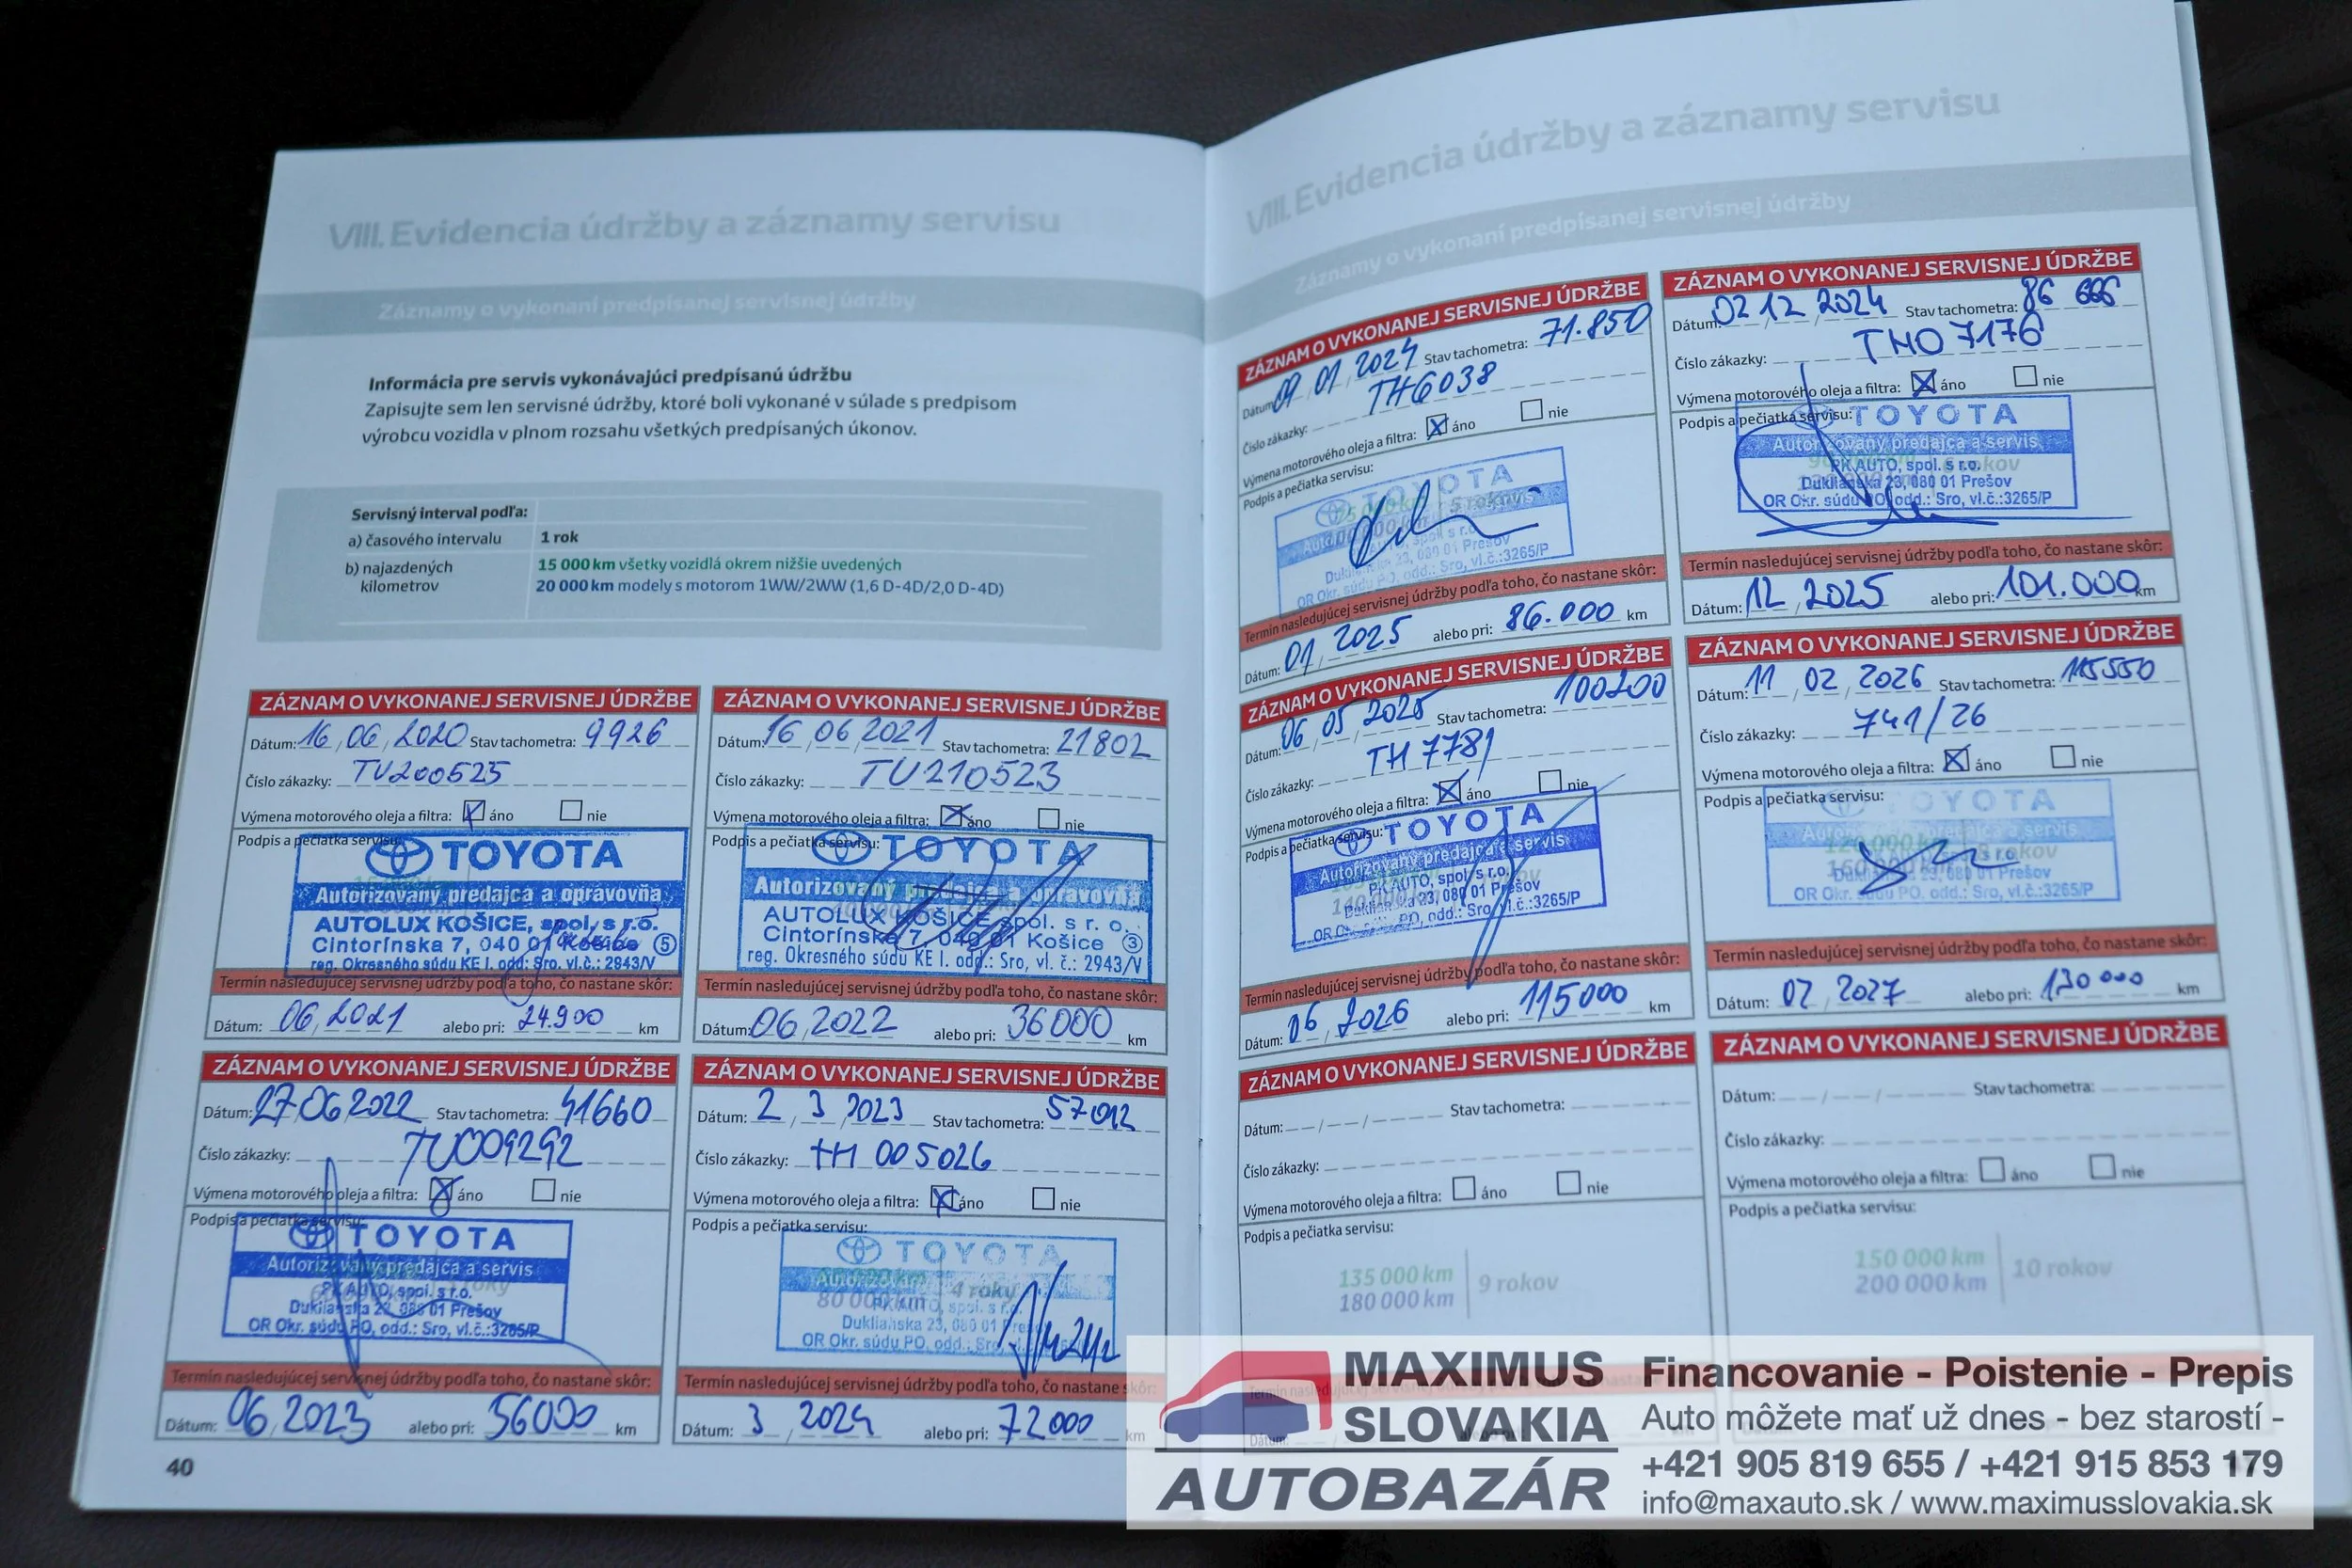 VIII. Evidencia údržby a záznamy servisu
Záznamy o vykonaní predpísanej servisnej údržby
Informácia pre servis vykonávajúci predpísanú údržbu
Zapisujte sem len servisné údržby, ktoré boli vykonané v súlade s predpisom
výrobcu vozidla v plnom rozsahu všetkých predpísaných úkonov.
Servisný interval podľa:
a) časového intervalu 1 rok
b) najazdených kilometrov 15 000 km všetky vozidlá okrem nižšie uvedených
20 000 km modely s motorom 1WW/2WW (1,6 D-4D/2,0 D-4D)
ZÁZNAM O VYKONANEJ SERVISNEJ ÚDRŽBE
Dátum: 16 / 06 / 2020 Stav tachometra: 9926
Číslo zákazky: TU200525
Výmena motorového oleja a filtra: áno nie
Podpis a pečiatka servisu:
TOYOTA
Autorizovaný predajca a opravovňa
AUTOLUX KOŠICE, spol. s r.o.
Cintorínska 7, 040 01 Košice 5
reg. Okresného súdu KE I. odd: Sro. vl.č.: 2943/V
Termín nasledujúcej servisnej údržby podľa toho, čo nastane skôr:
Dátum: 06 / 2021 alebo pri: 24.900 km
ZÁZNAM O VYKONANEJ SERVISNEJ ÚDRŽBE
Dátum: 16 / 06 / 2021 Stav tachometra: 21802
Číslo zákazky: TU210523
Výmena motorového oleja a filtra: áno nie
Podpis a pečiatka servisu:
TOYOTA
Autorizovaný predajca a opravovňa
AUTOLUX KOŠICE spol. s r. o.
Cintorínska 7, 040 01 Košice 3
reg. Okresného súdu KE I. odd.: Sro, vl. č.: 2943/V
Termín nasledujúcej servisnej údržby podľa toho, čo nastane skôr:
Dátum: 06 / 2022 alebo pri: 36000 km
ZÁZNAM O VYKONANEJ SERVISNEJ ÚDRŽBE
Dátum: 27 / 06 / 2022 Stav tachometra: 41660
Číslo zákazky: TU009292
Výmena motorového oleja a filtra: áno nie
Podpis a pečiatka servisu:
TOYOTA
Autorizovaný predajca a servis
PK AUTO, spol. s r.o.
Duklianska 23, 080 01 Prešov
OR Okr. súdu PO, odd.: Sro, vl.č.:3265/P
Termín nasledujúcej servisnej údržby podľa toho, čo nastane skôr:
Dátum: 06 / 2023 alebo pri: 56000 km
ZÁZNAM O VYKONANEJ SERVISNEJ ÚDRŽBE
Dátum: 2 / 3 / 2023 Stav tachometra: 57012
Číslo zákazky: TH 005026
Výmena motorového oleja a filtra: áno nie
Podpis a pečiatka servisu:
TOYOTA
80 000 km 4 roky
PK AUTO, spol. s r.o.
Duklianska 23, 080 01 Prešov
OR Okr. súdu PO, odd.: Sro
Termín nasledujúcej servisnej údržby podľa toho, čo nastane skôr:
Dátum: 3 / 2024 alebo pri: 72000 km
40
VIII. Evidencia údržby a záznamy servisu
Záznamy o vykonaní predpísanej servisnej údržby
ZÁZNAM O VYKONANEJ SERVISNEJ ÚDRŽBE
Dátum: 09 / 01 / 2024 Stav tachometra: 71.850
Číslo zákazky: TH6038
Výmena motorového oleja a filtra: áno nie
Podpis a pečiatka servisu:
TOYOTA
5 rokov
Duklianska 23, 080 01 Prešov
OR Okr. súdu PO, odd.: Sro, vl.č.:3265/P
Termín nasledujúcej servisnej údržby podľa toho, čo nastane skôr:
Dátum: 01 / 2025 alebo pri: 86.000 km
ZÁZNAM O VYKONANEJ SERVISNEJ ÚDRŽBE
Dátum: 02 / 12 / 2024 Stav tachometra: 86 666
Číslo zákazky: THO7176
Výmena motorového oleja a filtra: áno nie
Podpis a pečiatka servisu:
TOYOTA
Autorizovaný predajca a servis
PK AUTO, spol. s r.o.
Duklianska 23, 080 01 Prešov
OR Okr. súdu PO, odd.: Sro, vl.č.:3265/P
Termín nasledujúcej servisnej údržby podľa toho, čo nastane skôr:
Dátum: 12 / 2025 alebo pri: 101.000 km
ZÁZNAM O VYKONANEJ SERVISNEJ ÚDRŽBE
Dátum: 06 / 05 / 2025 Stav tachometra: 100200
Číslo zákazky: TH 7781
Výmena motorového oleja a filtra: áno nie
Podpis a pečiatka servisu:
TOYOTA
Autorizovaný predajca a servis
PK AUTO, spol. s r.o.
Duklianska 23, 080 01 Prešov
PO, odd.: Sro, vl.č.:3265/P
Termín nasledujúcej servisnej údržby podľa toho, čo nastane skôr:
Dátum: 06 / 2026 alebo pri: 115000 km
ZÁZNAM O VYKONANEJ SERVISNEJ ÚDRŽBE
Dátum: 11 / 02 / 2026 Stav tachometra: 115550
Číslo zákazky: 741/26
Výmena motorového oleja a filtra: áno nie
Podpis a pečiatka servisu:
TOYOTA
Autorizovaný predajca a servis
Duklianska 23, 080 01 Prešov
OR Okr. súdu PO, odd.: Sro, vl.č.:3265/P
Termín nasledujúcej servisnej údržby podľa toho, čo nastane skôr:
Dátum: 02 / 2027 alebo pri: 130 000 km
ZÁZNAM O VYKONANEJ SERVISNEJ ÚDRŽBE
Dátum: / / Stav tachometra:
Číslo zákazky:
Výmena motorového oleja a filtra: áno nie
Podpis a pečiatka servisu:
135 000 km
180 000 km 9 rokov
ZÁZNAM O VYKONANEJ SERVISNEJ ÚDRŽBE
Dátum: / / Stav tachometra:
Číslo zákazky:
Výmena motorového oleja a filtra: áno nie
Podpis a pečiatka servisu:
150 000 km
200 000 km 10 rokov
MAXIMUS
SLOVAKIA
AUTOBAZÁR
Financovanie - Poistenie - Prepis
Auto môžete mať už dnes - bez starostí -
+421 905 819 655 / +421 915 853 179
info@maxauto.sk / www.maximusslovakia.sk